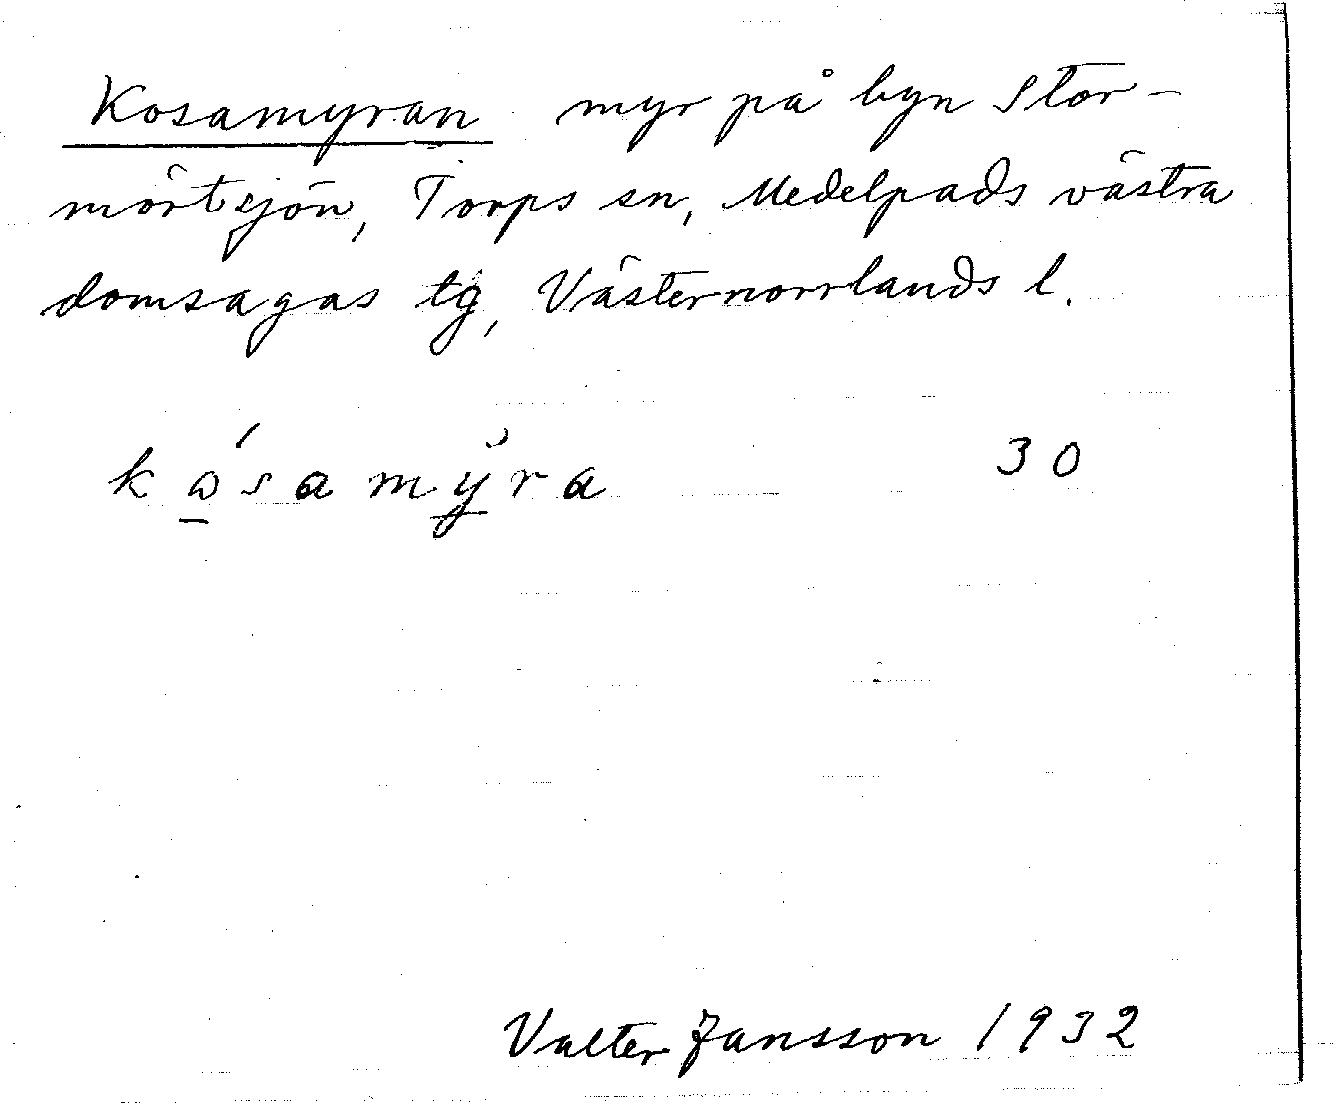 Kosamyran myr på byn Stor-
mörtsjön, Torps sn, Medelpads västra
domsagas tg, Västernorrlands l.
kɷ̲́samy̲̆ra 30
Valter Jansson 1932